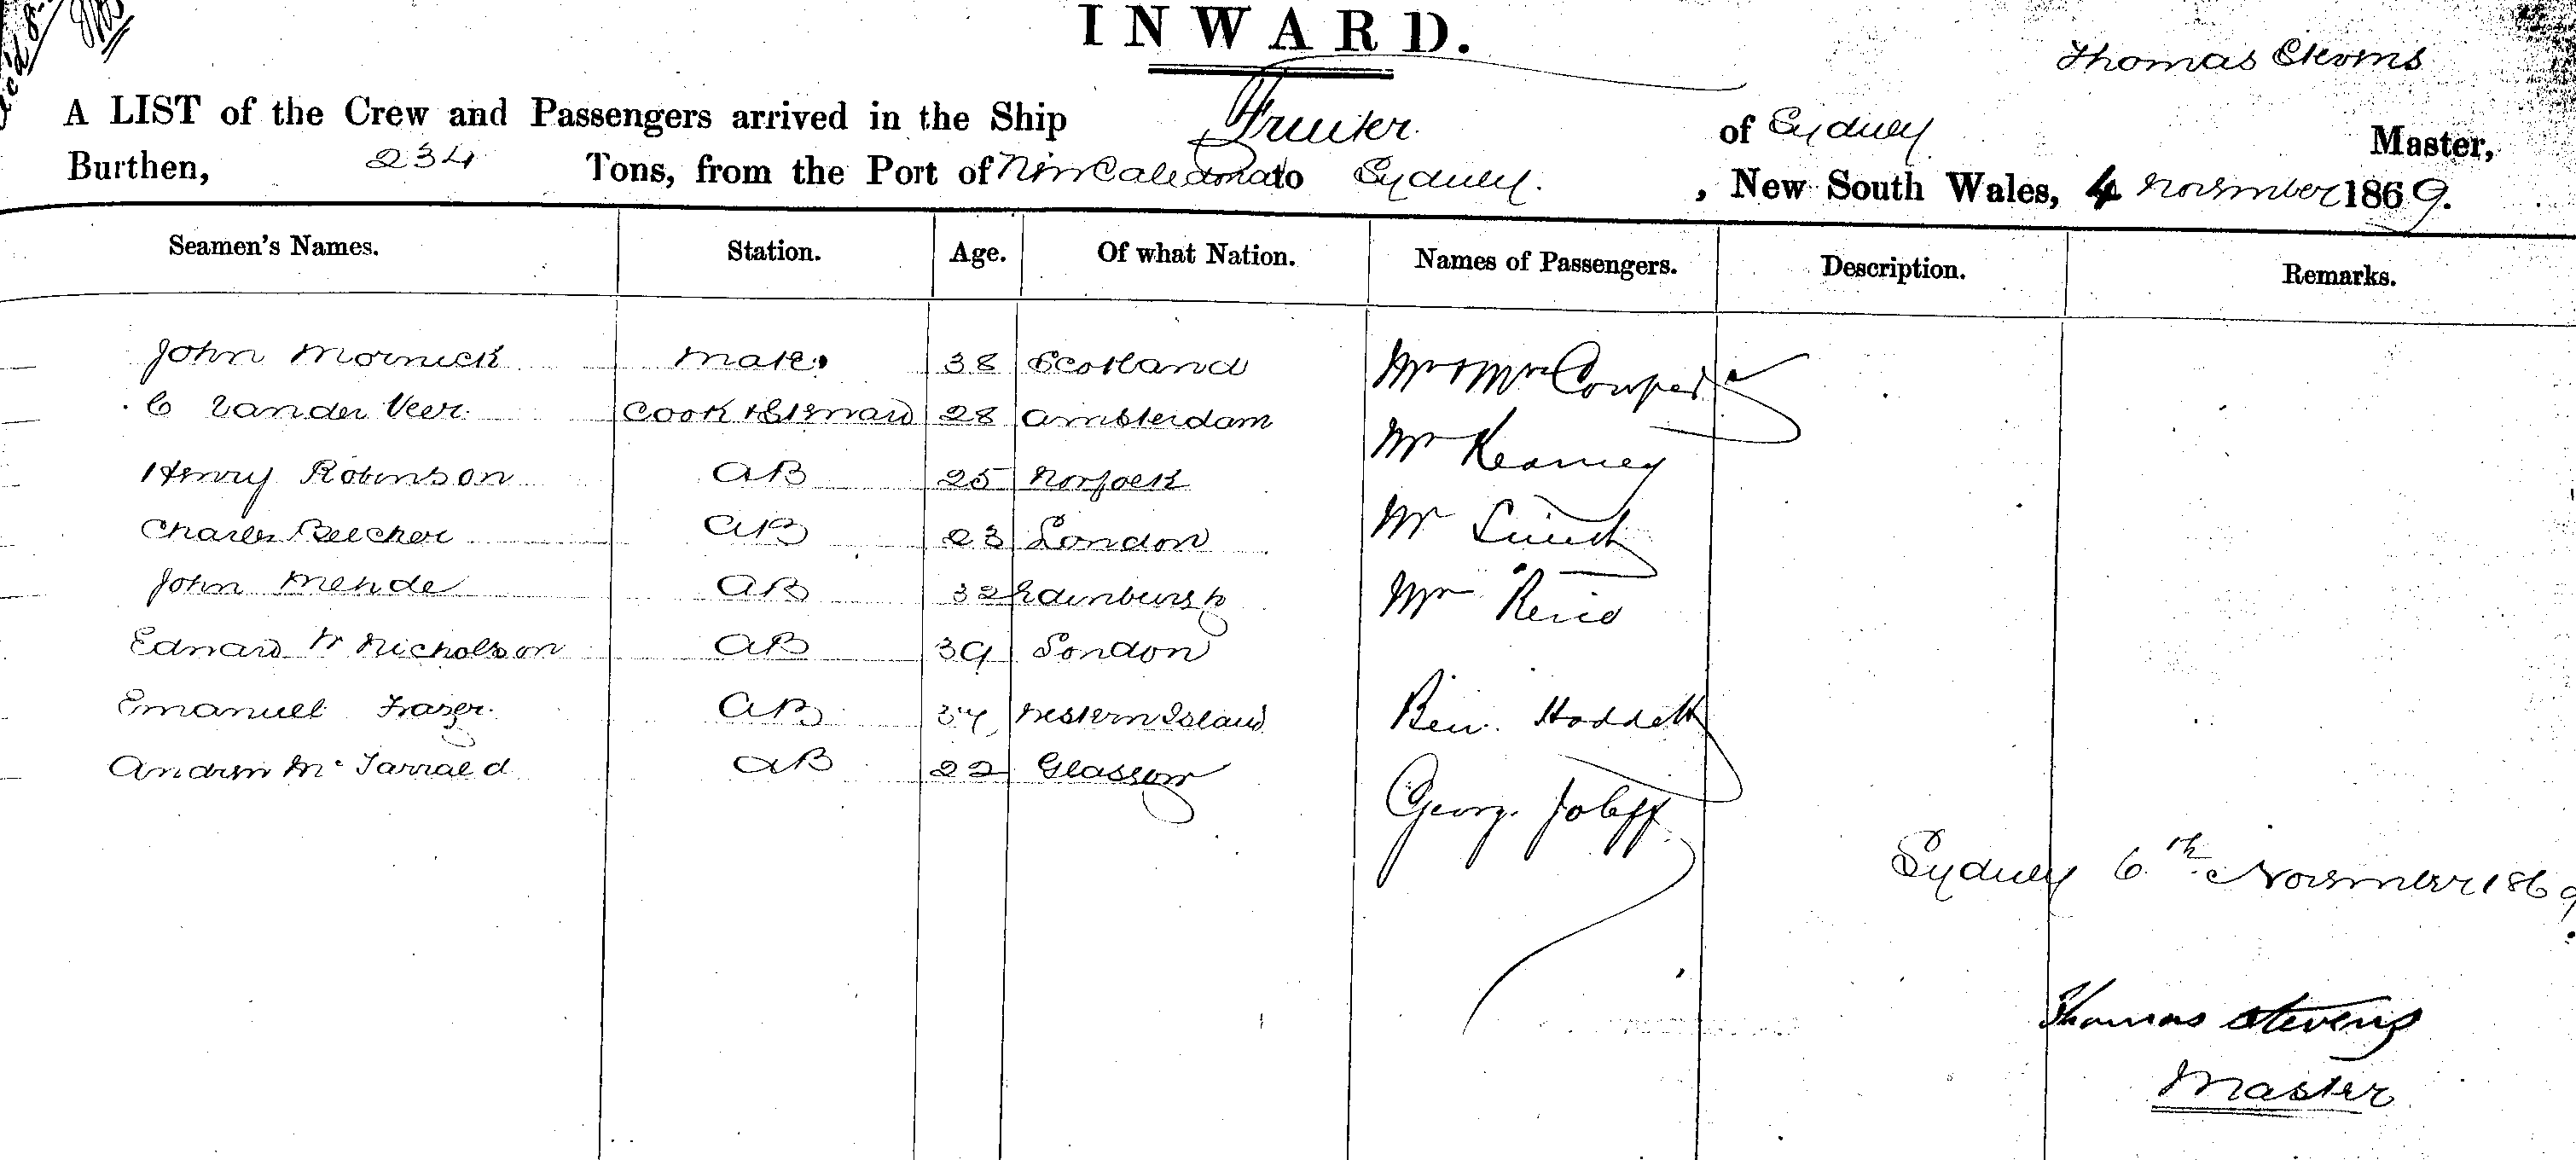 INWARD.
Thomas Stevens
A LIST of the Crew and Passengers arrived in the Ship Fruiter of Sydney Master,
Burthen, 234 Tons, from the Port of New Caledonia to Sydney. , New South Wales, 4 November 1869.
Seamen's Names. Station. Age. Of what Nation. Names of Passengers. Description. Remarks.
John Mornick Mate 38 Scotland Mr & Mrs Cowper
C Vander Veer Cook & Steward 28 Amsterdam
Mr Kearney
Henry Robinson AB 25 Norfolk
Charles Beecher AB 23 London Mr
John Mehde AB 32 Edinburgh Mr
Edward W Nicholson AB 39 London
Emanuel Frazer AB 34 Western Island Ben. Hoddett
Andrew Mc AB 22 Glasgow
George Joleff
Sydney 6th November 1869
Thomas Stevens
Master